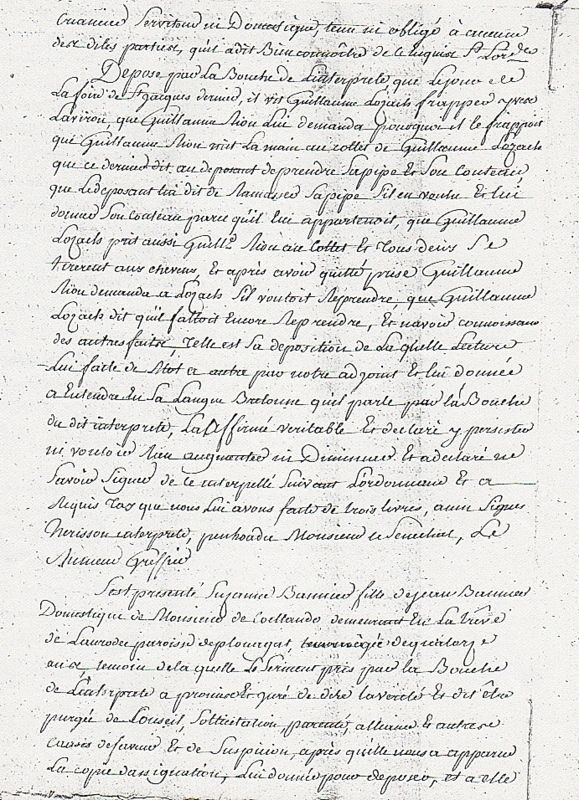 Creancier Serviteur ni Domestique, tenu ni obligé à aucune
des dites parties, qu'il a dit Bien connoître de ce Enquis
Depose par La Bouche de L'interprete que Le jour de
La foire de St jacques dernier, il vit Guillaume Lozach frapper
que Guillaume Riou Lui demanda pourquoi il le frappoit
que Guillaume Riou mit La main au collet de Guillaume Lozach
que ce dernier dit au deposant de prendre Sa pipe Et Son Couteau
que Le deposant lui dit de Ramasser Sa pipe S'il en vouloit Et lui
donner Son Couteau parce qu'il Lui appartenoit, que Guillaume
Lozach prit aussi Guille Riou au Collet Et Tous deux Se
tirerent aux cheveux, Et après avoir quitté prise Guillaume
Riou demanda a Lozach S'il vouloit Reprendre, que Guillaume
Lozach dit qu'il falloit Encore Reprendre, Et n'avoir connoissance
des autres faits. Telle est Sa deposition de La quelle Lecture
Lui faite de Mot a autre par notre adjoint Et lui donnée
a Entendre En Sa Langue Bretonne qu'il parle par la Bouche
du dit interprete, La Affirme veritable Et declaré y persister
ni vouloir Rien augmenter ni Diminuer Et a declaré ne
Savoir Signer de ce interpellé Suivant L'ordonnance Et a
Requis Tax que nous Lui avons faite de trois livres, ainsi Signés
interprete, penhoadic Monsieur le Senechal, Le
Greffier
S'est presenté Suzanne Bannier fille de jean Bannier
Domestique de Monsieur de Coëtlando demeurant En La Trêve
de Lanrodec paroisse de plouagat, agée de quatorze
ans temoin de la quelle Le Serment pris par La Bouche
de L'interprete a promis Et juré de dire La verité Et dit être
purgée de Conseil, Sollicitation, parenté, alliance Et autres
causes de faveur Et de Suspicion, après qu'elle nous a apparu
La copie d'assignation, Lui donnée pour deposer, Et a elle